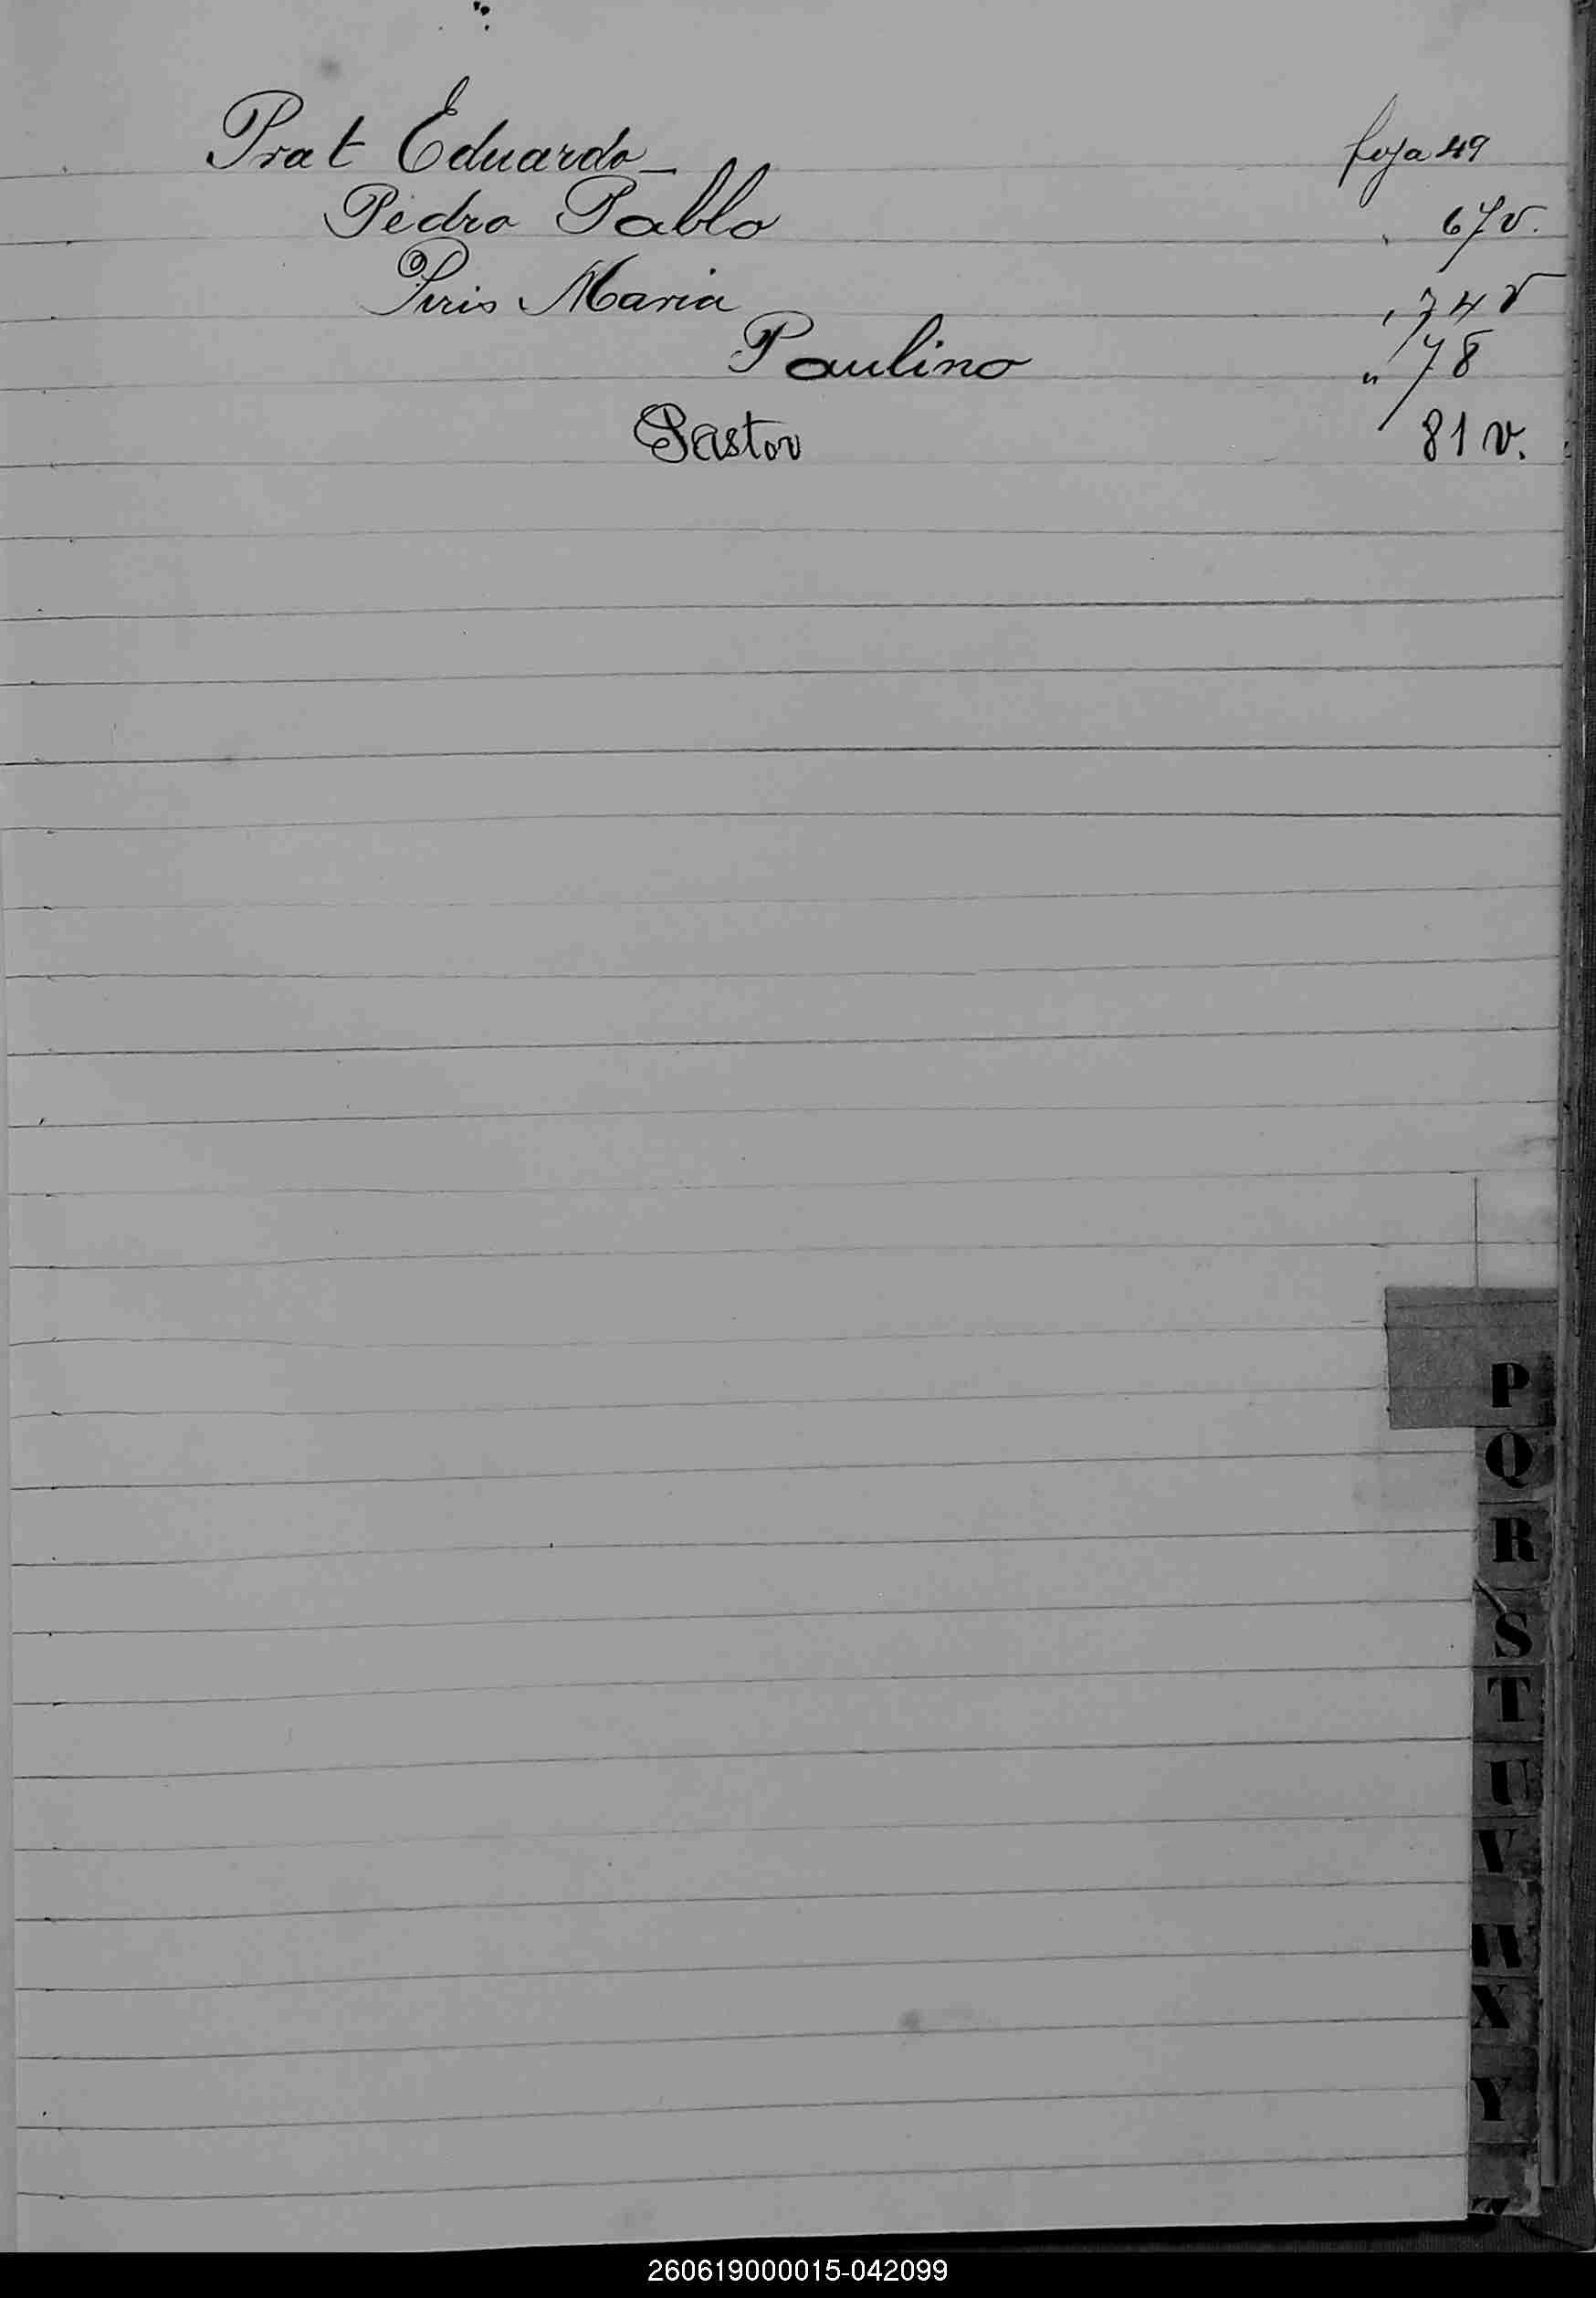 Prat Eduardo foja 49
Pedro Pablo 67 v.
Piris Maria 74 v
Paulino " 78
Pastor 81 v.
P
Q
R
S
T
U
V
W
X
Y
Z
260619000015-042099